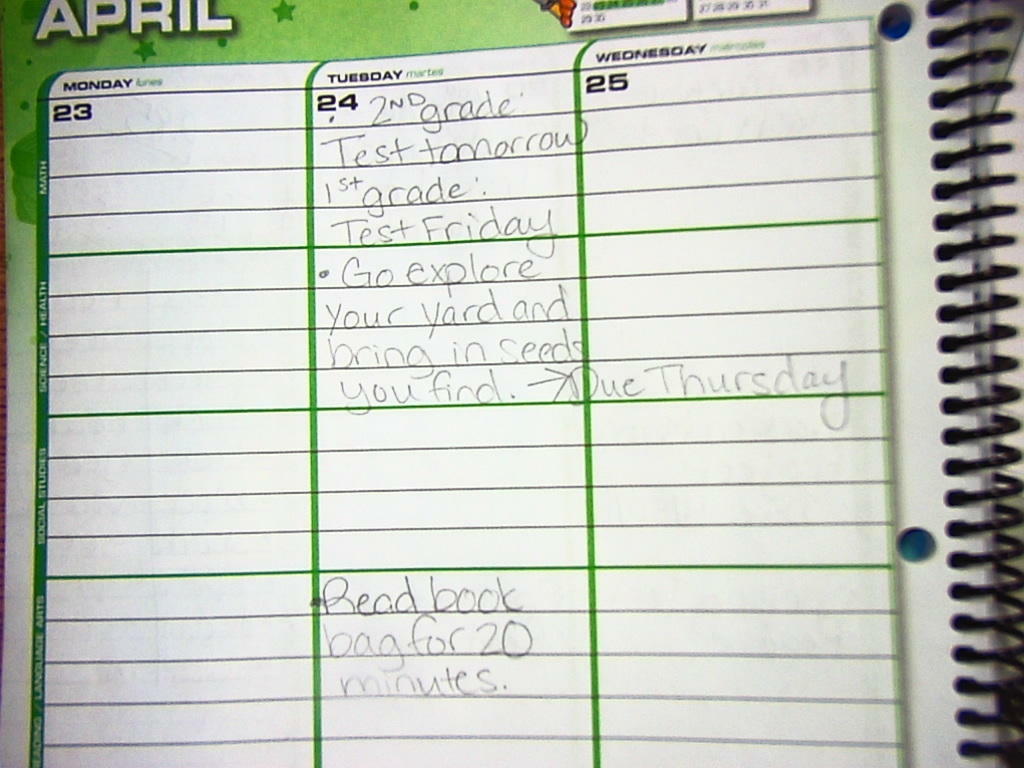 APRIL
29 30
27 28 29 30 31
MONDAY lunes
23
TUESDAY martes
24
WEDNESDAY miércoles
25
MATH
2ND grade
Test tomorrow
1st grade:
Test Friday
SCIENCE / HEALTH
• Go explore
your yard and
bring in seeds
you find. → Due Thursday
SOCIAL STUDIES
READING / LANGUAGE ARTS
• Read book
bag for 20
minutes.